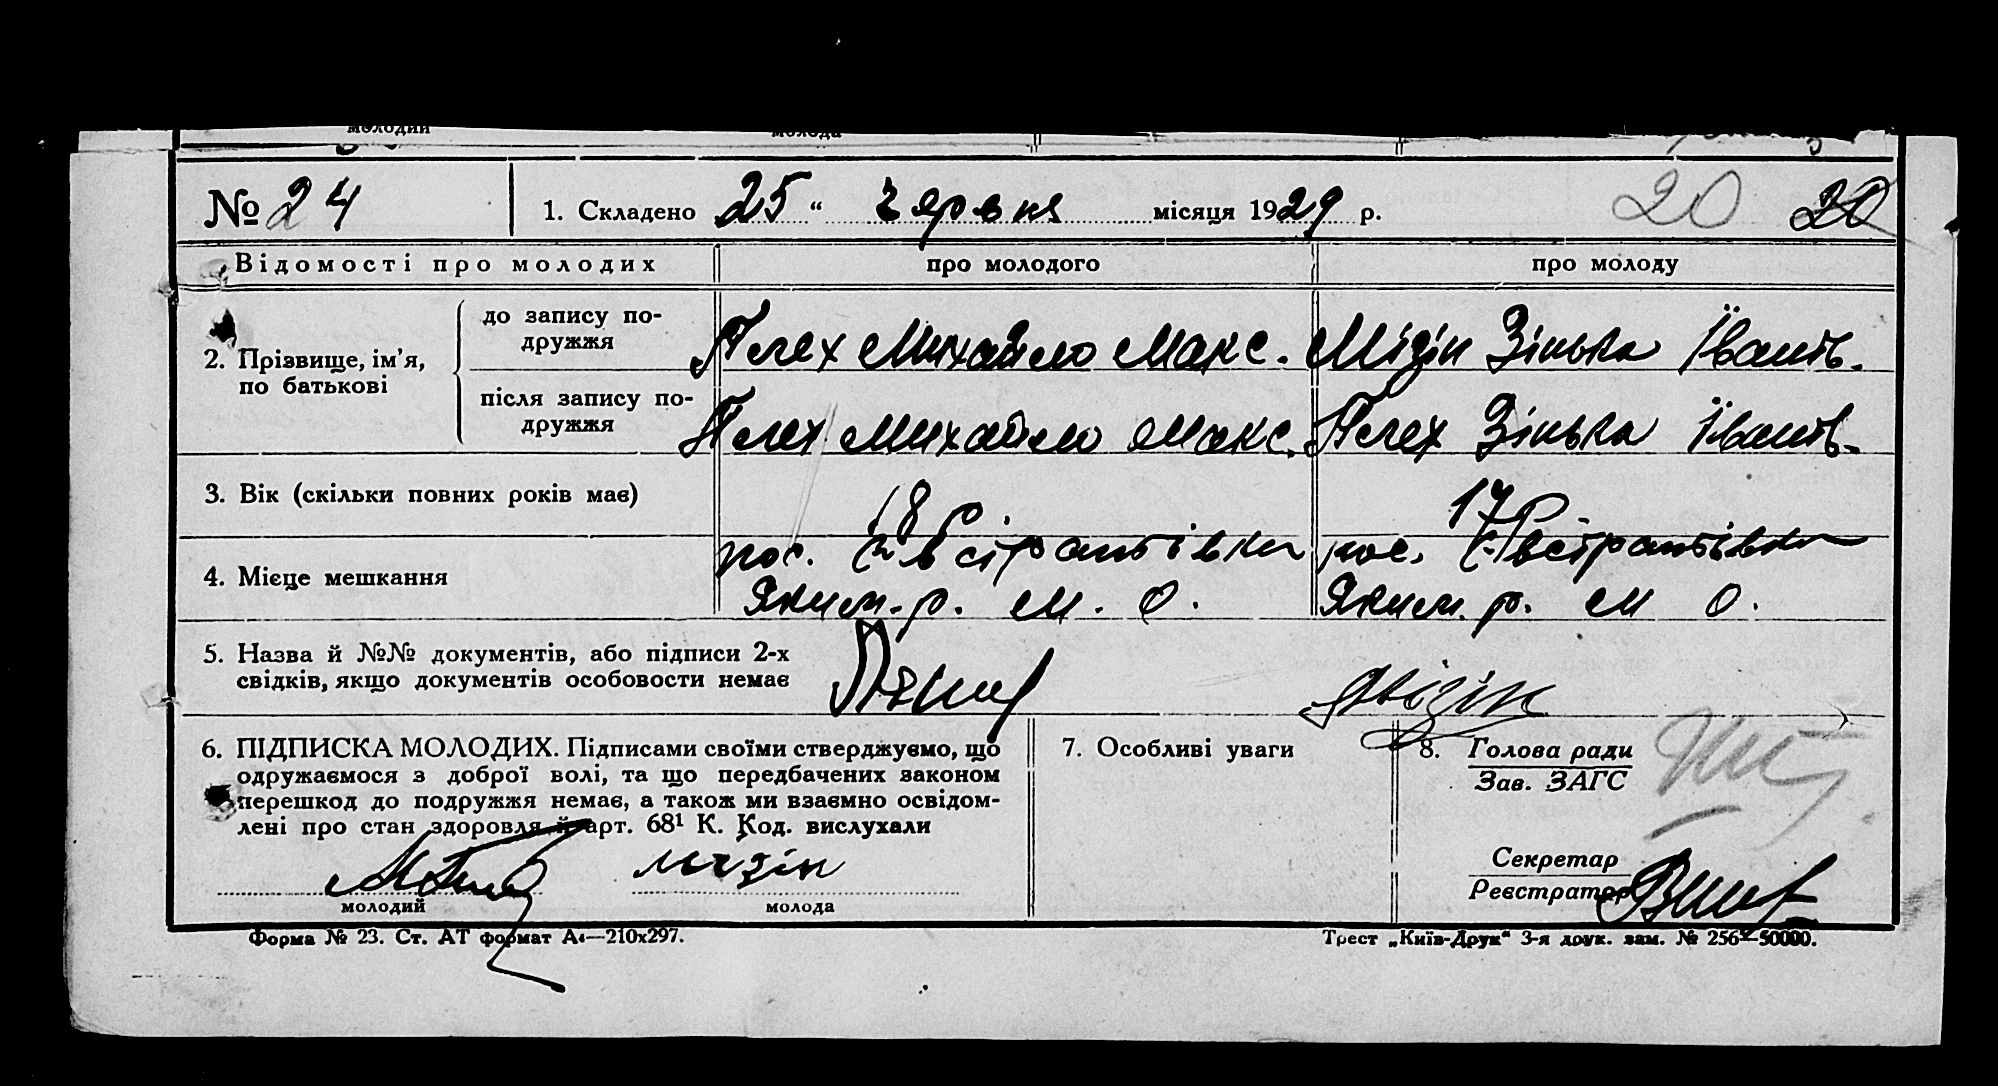 молодий молода
№ 24 1. Складено 25 “ червня місяця 1929 р. 20 20
Відомості про молодих про молодого про молоду
2. Прізвище, ім’я, по батькові
до запису по-
дружжя
Пелех Михайло Макс. Мізін Зінька Івашв.
після запису по-
дружжя
Пелех Михайло Макс. Пелех Зінька Івашв.
3. Вік (скільки повних років має) 18 р 17 р
4. Місце мешкання
пос. Євстратівка пос. Євстратівка
Яким. р. М. О. Яким. р. М О.
5. Назва й №№ документів, або підписи 2-х
свідків, якщо документів особовости немає
Мізін
6. ПІДПИСКА МОЛОДИХ. Підписами своїми стверджуємо, що
одружаємося з доброї волі, та що передбачених законом
перешкод до подружжя немає, а також ми взаємно освідом-
лені про стан здоровля й арт. 68¹ К. Код. вислухали
мізін
молодий молода
7. Особливі уваги
8. Голова ради
Зав. ЗАГС
Секретар
Реєстратор
Форма № 23. Ст. АТ формат А4—210x297. Трест „Київ-Друк“ 3-я друк. зам. № 256—50000.